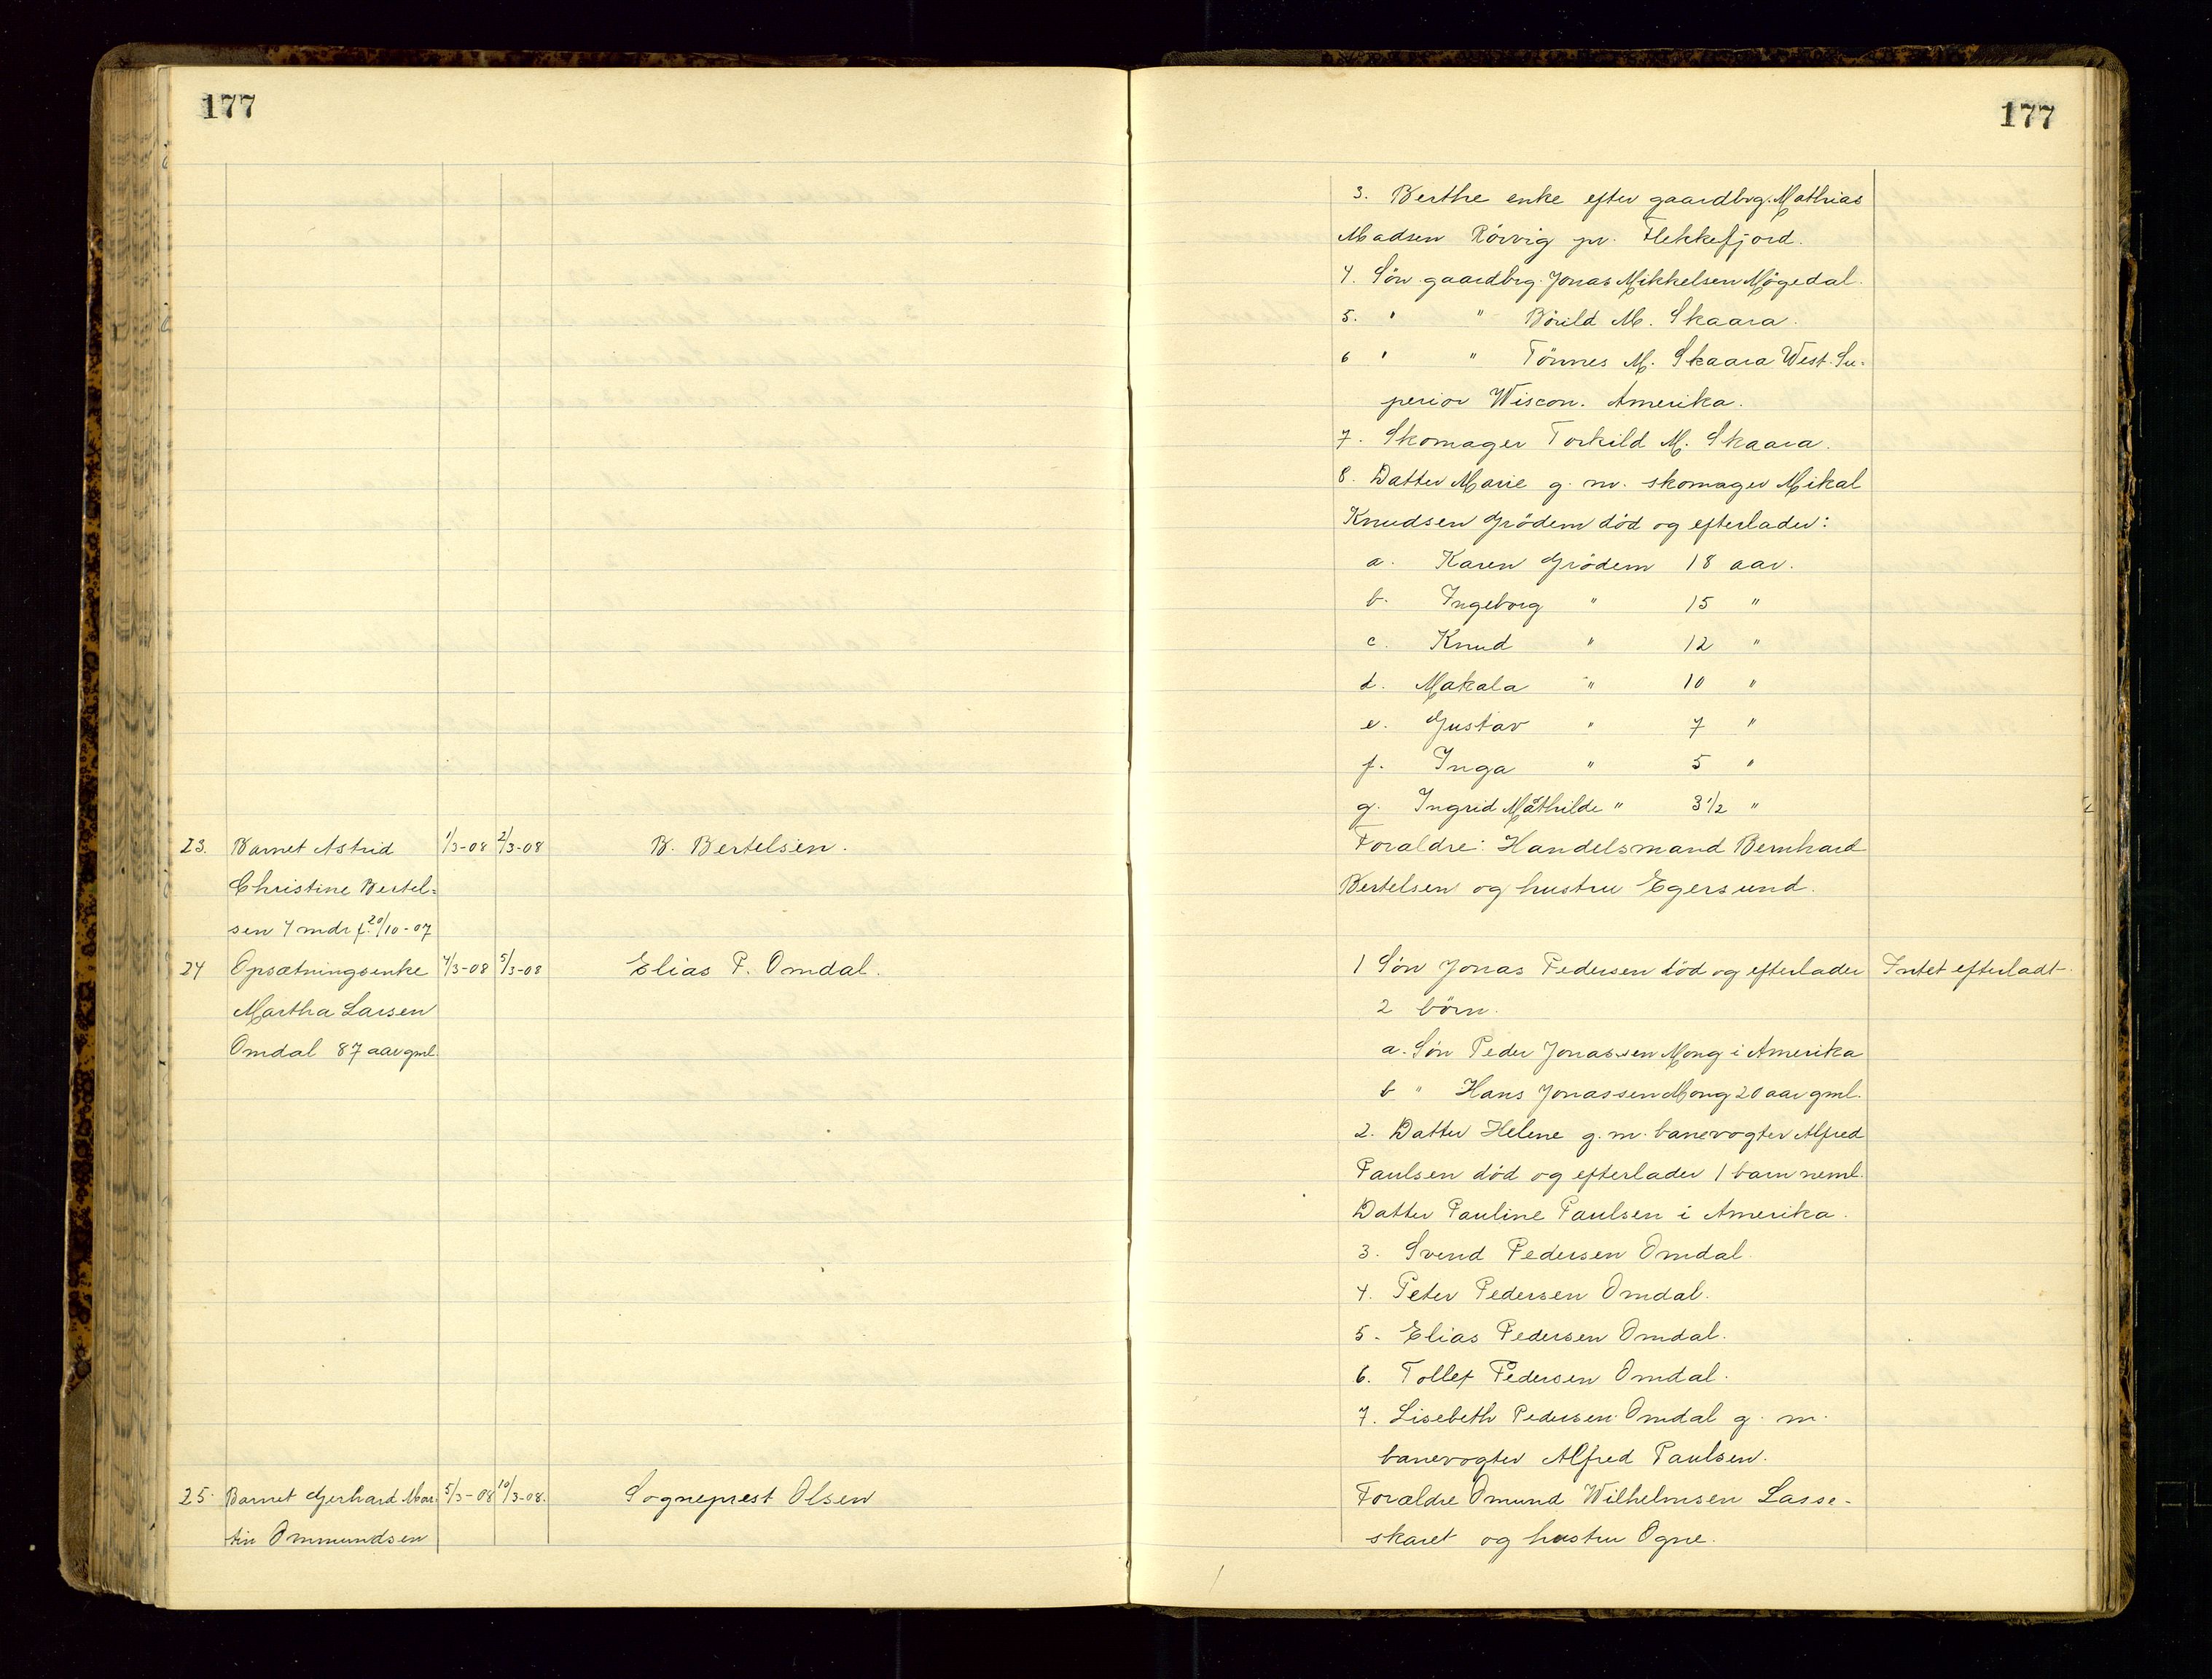 177
177
3. Berthe enke efter gaardbrg. Mathias
Madsen Rörvig pr. Flekkefjord.
4. Sön gaardbrg. Jonas Mikkelsen Mögedal.
5. " " Börild M. Skaara.
6 " " Tönnes M. Skaara West. Su-
perior Wiscon. Amerika.
7. Skomager Torkild M. Skaara.
8. Datter Marie g. m. skomager Mikal
Knudsen Grödem död og efterlader:
a. Karen Grödem 18 aar.
b. Ingeborg " 15 "
c. Knud " 12 "
d. Makala " 10 "
e. Gustav " 7 "
f. Inga " 5 "
g. Ingrid Mathilde " 3 1/2 "
23. Barnet Astrid 1/3-08 2/3-08 B. Bertelsen. Forældre: Handelsmand Bernhard
Christine Bertel= Bertelsen og hustru Egersund.
sen 4 mdr f. 20/10-07
24 Opsætningsenke 4/3-08 5/3-08 Elias P. Omdal. 1 Sön Jonas Pedersen död og efterlader Intet efterladt.
Martha Larsen 2 börn.
Omdal 87 aar gml. a. Sön Peder Jonassen Mong i Amerika
b " Hans Jonassen Mong 20 aar gml.
2. Datter Helene g. m. banevogter Alfred
Paulsen död og efterlader 1 barn neml.
Datter Pauline Paulsen i Amerika.
3. Svend Pedersen Omdal.
4. Peter Pedersen Omdal.
5. Elias Pedersen Omdal.
6. Tollef Pedersen Omdal.
7. Lisebeth Pedersen Omdal g. m.
banevogter Alfred Paulsen.
25. Barnet Gerhard Mar. 5/3-08 10/3-08. Sogneprest Olsen Forældre Omund Wilhelmsen Lasse-
tin Ommundsen skaret og hustru Ogne.